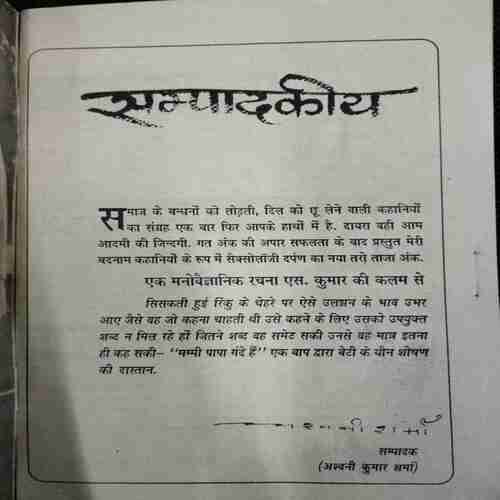 सम्पादकीय
समाज के बन्धनों को तोड़ती, दिल को छू लेने वाली कहानियों
का संग्रह एक बार फिर आपके हाथों में है. दायरा वही आम
आदमी की जिन्दगी. गत अंक की अपार सफलता के बाद प्रस्तुत मेरी
बदनाम कहानियों के रूप में सैक्सोलॉजी दर्पण का नया तरो ताजा अंक.
एक मनोवैज्ञानिक रचना एस. कुमार की कलम से
सिसकती हुई रिंकु के चेहरे पर ऐसे उलझन के भाव उभर
आए जैसे वह जो कहना चाहती थी उसे कहने के लिए उसको उपयुक्त
शब्द न मिल रहे हों जितने शब्द वह समेट सकी उनसे वह मात्र इतना
ही कह सकी– ‘‘मम्मी पापा गंदे हैं’’ एक बाप द्वारा बेटी के यौन शोषण
की दास्तान.
सम्पादक
(अश्वनी कुमार शर्मा)